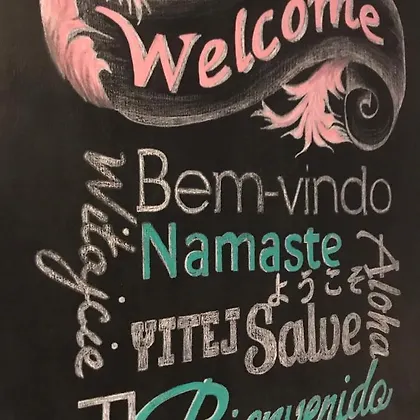 Welcome
Witajcie
Bem-vindo
Namaste
ようこそ
Aloha
YITEJ
Salve
Bienvenido